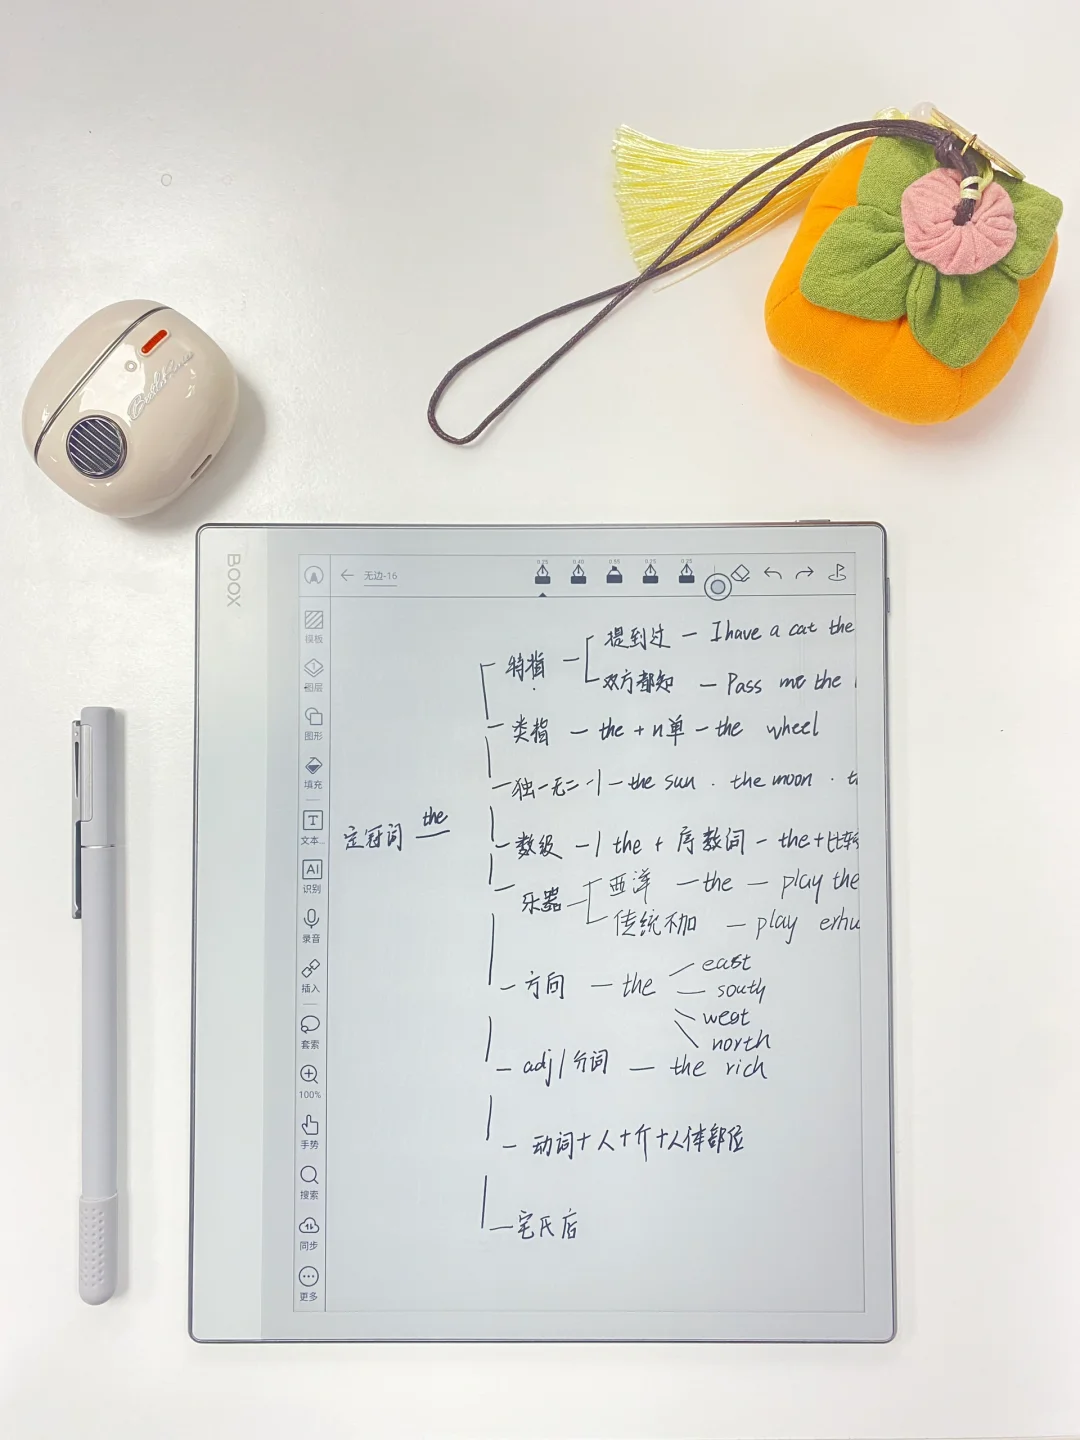 BOOX
无边-16
0.25 0.40 0.55 0.25 0.25
模板
图层
图形
填充
文本...
识别
录音
插入
套索
100%
手势
搜索
同步
更多
定冠词 the
特指 — 提到过 — I have a cat the
双方都知 — Pass me the
类指 — the + n单 — the wheel
独一无二 — the sun . the moon .
数级 — the + 序数词 — the + 比较
乐器 — 西洋 — the — play the
传统不加 — play erhu
方向 — the east
south
west
north
adj/分词 — the rich
动词+人+介+人体部位